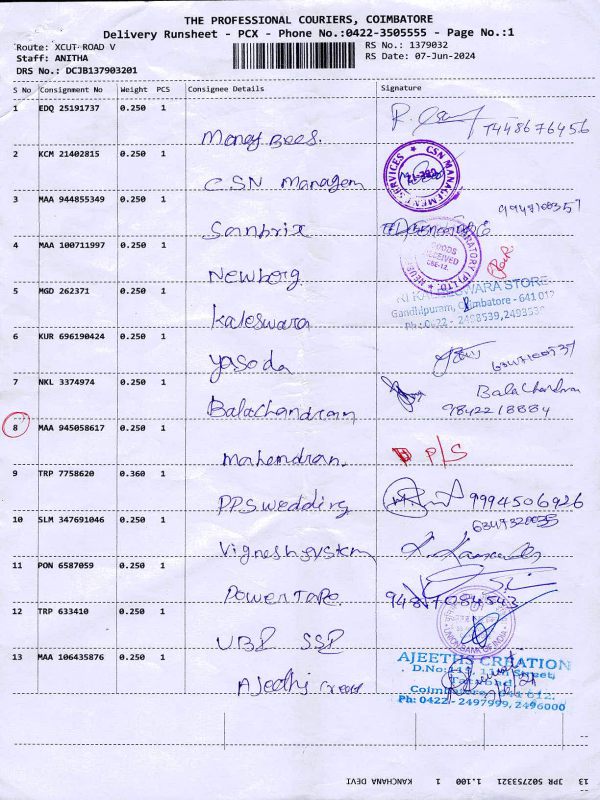 THE PROFESSIONAL COURIERS, COIMBATORE
Delivery Runsheet - PCX - Phone No.:0422-3505555 - Page No.:1
Route: XCUT ROAD V
RS No.: 1379032
Staff: ANITHA
RS Date: 07-Jun-2024
DRS No.: DCJB137903201
S No Consignment No Weight PCS Consignee Details Signature
1 EDQ 25191737 0.250 1
Money Bees. T448676456
2 KCM 21402815 0.250 1
CSN Managem
CSN MANAGEMENT SERVICES
3 MAA 944855349 0.250 1
9947100357
Sanbrix
4 MAA 100711997 0.250 1
GOODS RECEIVED
CBE-12.
Newberg
5 MGD 262371 0.250 1
KALEESWARA STORE
Gandhipuram, Coimbatore - 641 012
Kaleswara
6 KUR 696190424 0.250 1
Yasoda 6347100537
7 NKL 3374974 0.250 1
Balachandran
Balachandran
9842218884
8 MAA 945058617 0.250 1
Mahendran. P/S
9 TRP 7758620 0.360 1
PPS wedding 9994506926
10 SLM 347691046 0.250 1
6349320055
Vignesh system
11 PON 6587059 0.250 1
Power Tape. 9487084543
12 TRP 633410 0.250 1
UBI SSI
UNION BANK OF INDIA
13 MAA 106435876 0.250 1
Ajeeths creat
AJEETHS CREATION
Ph: 0422 - 2497999, 2496000
13 JPR 502753321 1.100 1 KANCHANA DEVI